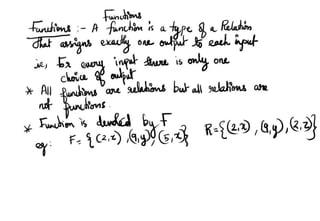 Functions
Functions :- A function is a type of a Relation
that assigns exactly one output to each input
ie, for every input there is only one
choice of output
* All functions are relations but all relations are
not functions.
* Function is denoted by F
eg: F = {(2,x), (9,y), (5,x)} R={(2,x), (9,y), (2,z)}